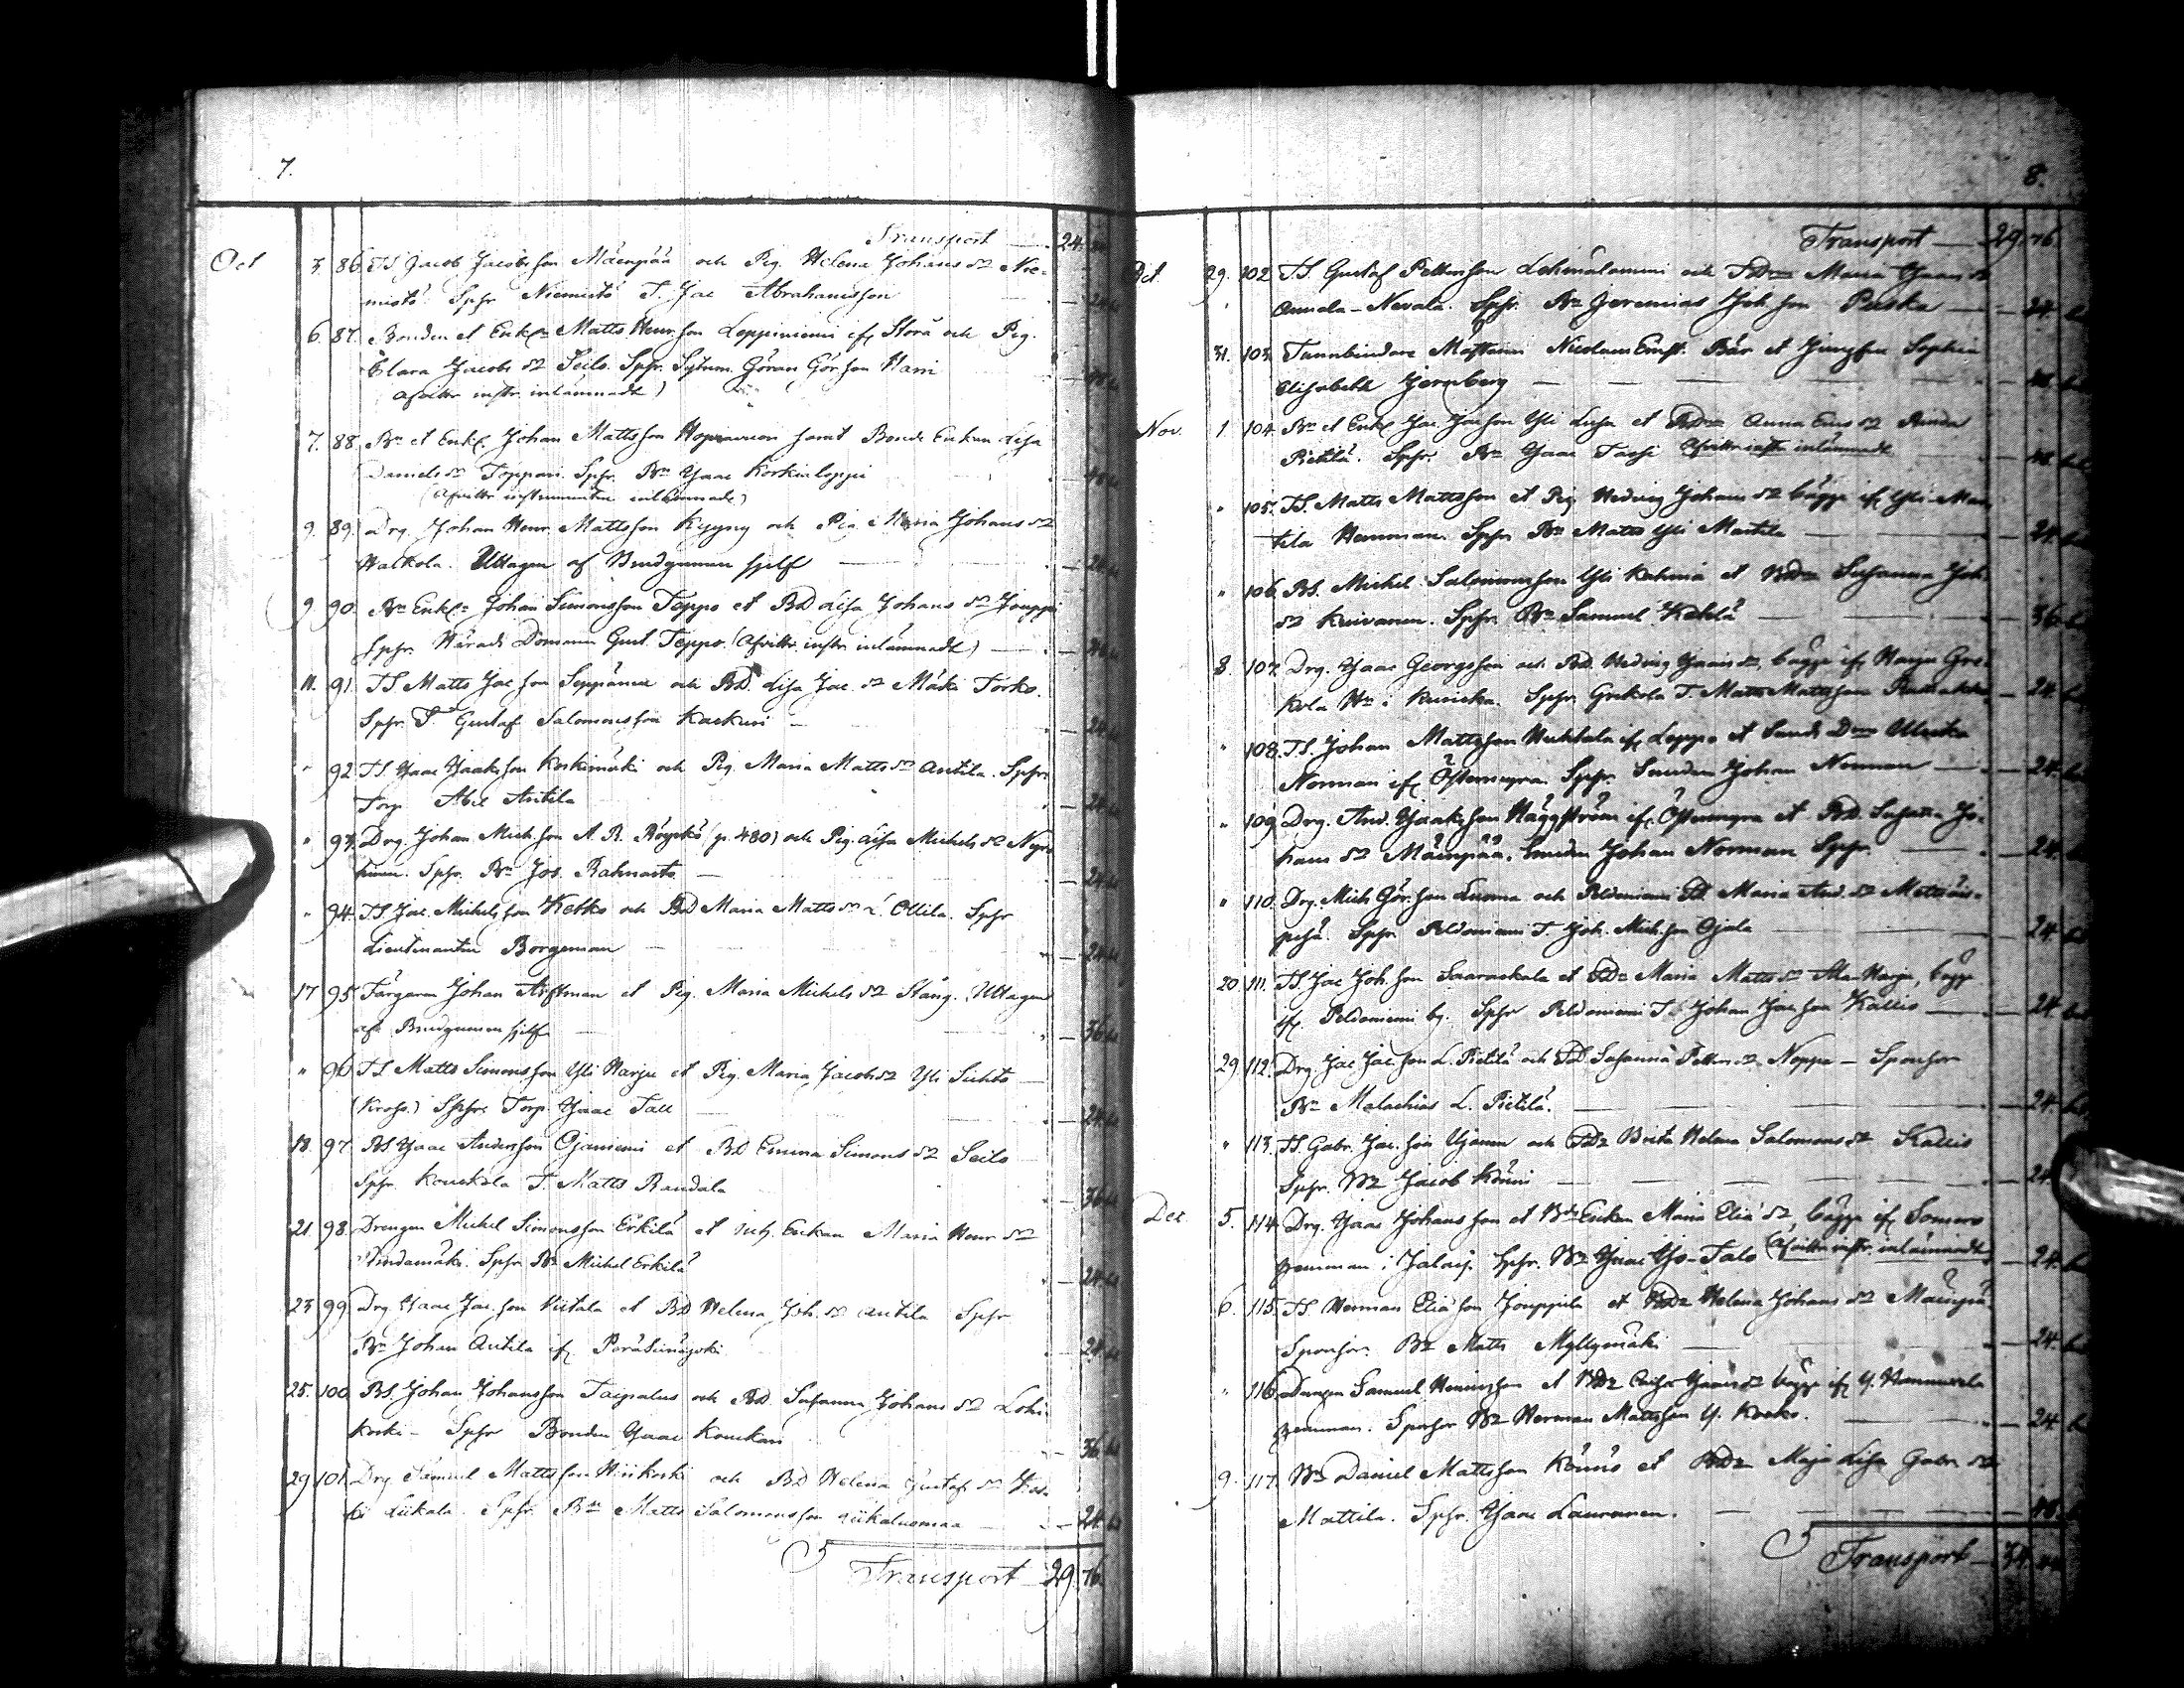 7.
Transport — 24.
Oct 3. 86. TS. Jacob Jacobsson Mäenpää och Pig. Helena Johans dr Nie-
mistö. Spsr Niemistö T. Jac Abrahamsson — 24
6. 87. Bonden et Enkl. Matts Henr. son Loppiniemi if. Storå och Pig.
Clara Jacobs dr Seilo. Spsr. Sytnm. Göran Gör. son Harri
afvittr. instr. inlämnadt)
7. 88. Bn et Enkl. Johan Mattsson samt Bonde Enkan Lisa
Daniels dr Toppari. Spsr. Bn Isaac Korkialoppi
(Afvittr instrumentet inlämnadt)
9. 89. Drg. Johan Henr. Mattsson Kyyny och Pig. Maria Johans dr
Walkola. Uttagen af Brudgummen sjelf — 24
9. 90. Bn Enkl. Johan Simonsson Teppo et BD Lisa Johans dr Jouppi
Spsr. Härads Domaren Gust. Teppo. (Afvittr. instr. inlämnadt) —
11. 91. TS Matts Jac son Seppänen och BD. Lisa Jac. dr Mäki Torko.
Spsr. T. Gustaf Salomonsson Kackuri — 24
" 92. TS. Isaac Isaaksson Koskimäki och Pig. Maria Matts dr Antila. Spsr.
Torp. Abel Antila — 24
" 93. Drg. Johan Mich. son A. R. Röyskö (p. 480) och Pig. Lisa Michels dr Nyr-
hinen. Spsr. Bn Jos. Rahnasto — 24
" 94. TS. Jac. Michelsson Ketko och BD Maria Matts dr L. Ollila. Spsr
Lieutenanten Borgeman — 24
17 95. Färgaren Johan et Pig. Maria Michels dr Stång. Uttagen
af Brudgummen sjelf — 36
" 96. TS Matts Simonsson Yli Harju et Pig. Maria Jacobs dr Yli Suhto —
Spsr. Torp. Isaac Tall — 24
18. 97. BS Isaac Andersson Ojaniemi et BD Emma Simons dr Seilo
Spsr. Kouckola T. Matts Randala — 36
21. 98. Drengen Michel Simonsson Erkilä et Enkan Maria Henr dr
Pindamäki. Spsr. Bn Michel Erkilä — 24
23 99. Drg Isaac Jac. son Viitala et BD Helena Joh. dr Antila Spsr
Bn Johan Antila if. Peräseinäjoki — 24
25. 100. BS. Johan Johansson Taipalus och BD. Susanna Johans dr Lohi-
koski — Spsr Bonden Isaac Kouckari — 36
29 101. Drg Samuel Mattsson Hiikoski och BD Helena Gustaf dr
Liikala. Spsr. Bn Matts Salomonsson Liikaluomaa — 24
Transport — 29 16
8.
Transport — 29. 16
Oct 29. 102. TS. Gustaf Pettersson Lehmälammi och TDr Maria Isaacs dr
Annala-Nevala. Spsr. Bn Jeremias Joh. son Puska — 24
31. 103. Tunnbindare Mästaren Nicolaus Ernst. Bär et Jungfru Sophia
Elisabeth Jernberg —
Nov. 1 104. Bn et Enkl Jac. Jacson Yli Luha et Anna Ers dr
Pietilä. Spsr. Bn Isaac Tassi Afvittr instr inlämnadt
" 105. TS. Matts Mattsson et Pig Hedvig Johans dr bägge if. Yli-Mar-
tila Hemman. Spsr. Bn Matts Yli Martila — 24
" 106. BS. Michel Salomonsson Yli Rahnia et BDr Susanna Joh.
dr Kuivanen. Spsr. Bn Samuel Kähkä — 36
8 107. Drg. Isaac Georgsson och BD. Hedvig Isaacs dr, bägge if. Harju Gre-
kola Hn i Kuricka. Spsr. Grekola T. Matts Mattsson — 24
" 108. TS. Johan Mattsson Huhtala if. Loppi et Smeds Dr Ulrika
Norman if. Östermyra. Spsr. Smeden Johan Norman — 24
" 109. Drg. And. Isaaksson Häggström if. Östermyra et BD. Susanna Jo-
hans dr Mäenpää. Smeden Johan Norman Spsr. — 24
" 110. Drg. Mich Gör. son Luoma och Peldoniemi TD Maria And. dr
Spsr. Peldoniemi T. Joh. Mich. son Ojala — 24
20. 111. TS. Jac Joh. son Saaraskala et TDr Maria Matts dr Ala-Harju, bägge
if. Peldoniemi by. Spsr Peldoniemi TS Johan Jacson Kallio — 24
29. 112. Drg. Jac Jac son L. Pietilä och TD. Susanna Petters dr Noppa — Sponsor
Bn Malachias L. Pietilä. — 24
" 113. TS. Gabr. Jac. son Ujanen och TDr Brita Helena Salomons dr Kallio
Spsr. Br Jacob Könni — 24
Dec 5. 114. Drg. Isaac Johansson et Bde Enkan Maria Elia dr, bägge if. Somero
hemman i Jalasj. Spsr. Bn Isaac Yjo-Talo (Afvittr instr. inlämnadt) — 24
6. 115. TS. Herman Eliasson Jouppila et BDr Helena Johans dr Mäenpää
Sponsor. Br Matts Myllymäki — 24
" 116. Drengen Samuel Henricsson et BDr Caisa Isaacs dr bägge if. Y. Hannuxela
hemman. Sponsor Br Herman Mattsson Y. Kosko. — 24
9. 117. Bn Daniel Mattsson Könnö et BDr Maja Lisa Gabr. dr
Mattila. Spsr. Isaac Lauronen. —
Transport — 34